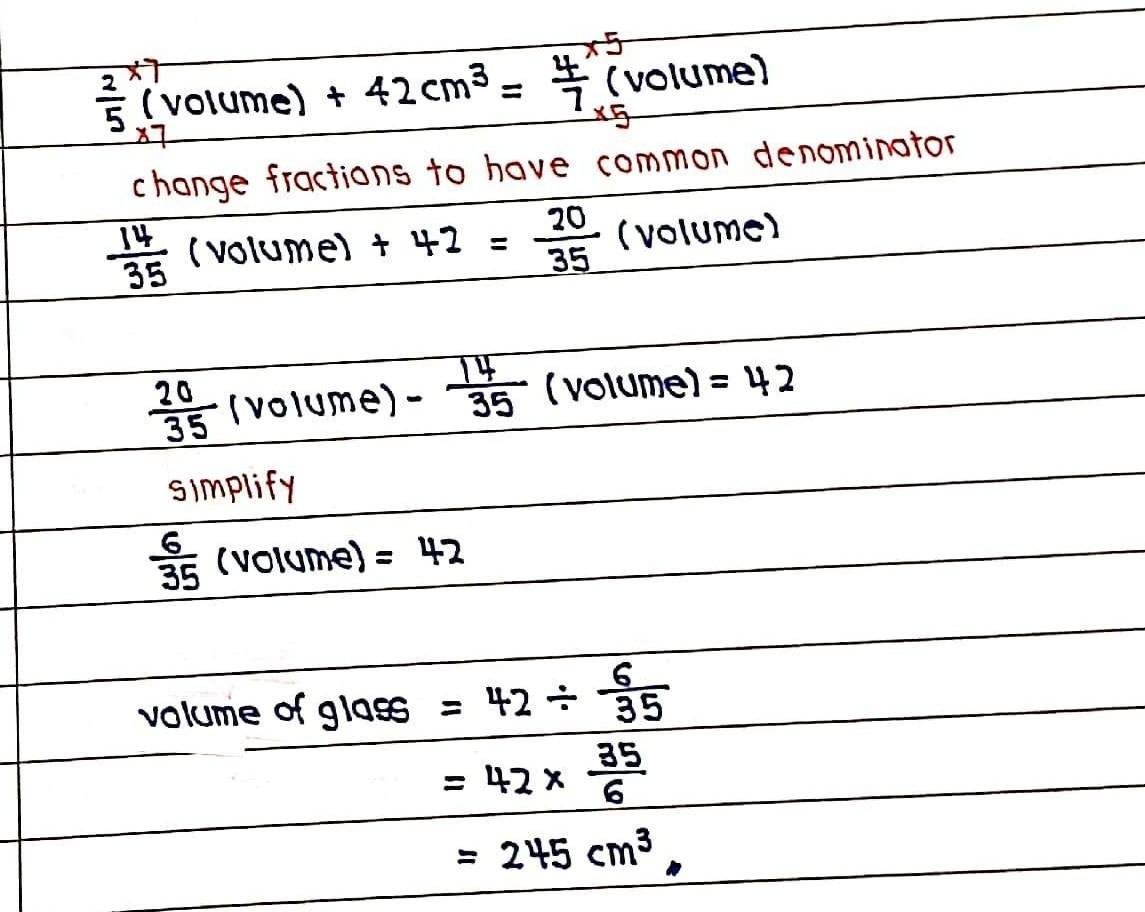 2/5 ×7 ×7 (volume) + 42cm³ = 4/7 ×5 ×5 (volume)
change fractions to have common denominator
14/35 (volume) + 42 = 20/35 (volume)
20/35 (volume) - 14/35 (volume) = 42
simplify
6/35 (volume) = 42
volume of glass = 42 ÷ 6/35
= 42 × 35/6
= 245 cm³